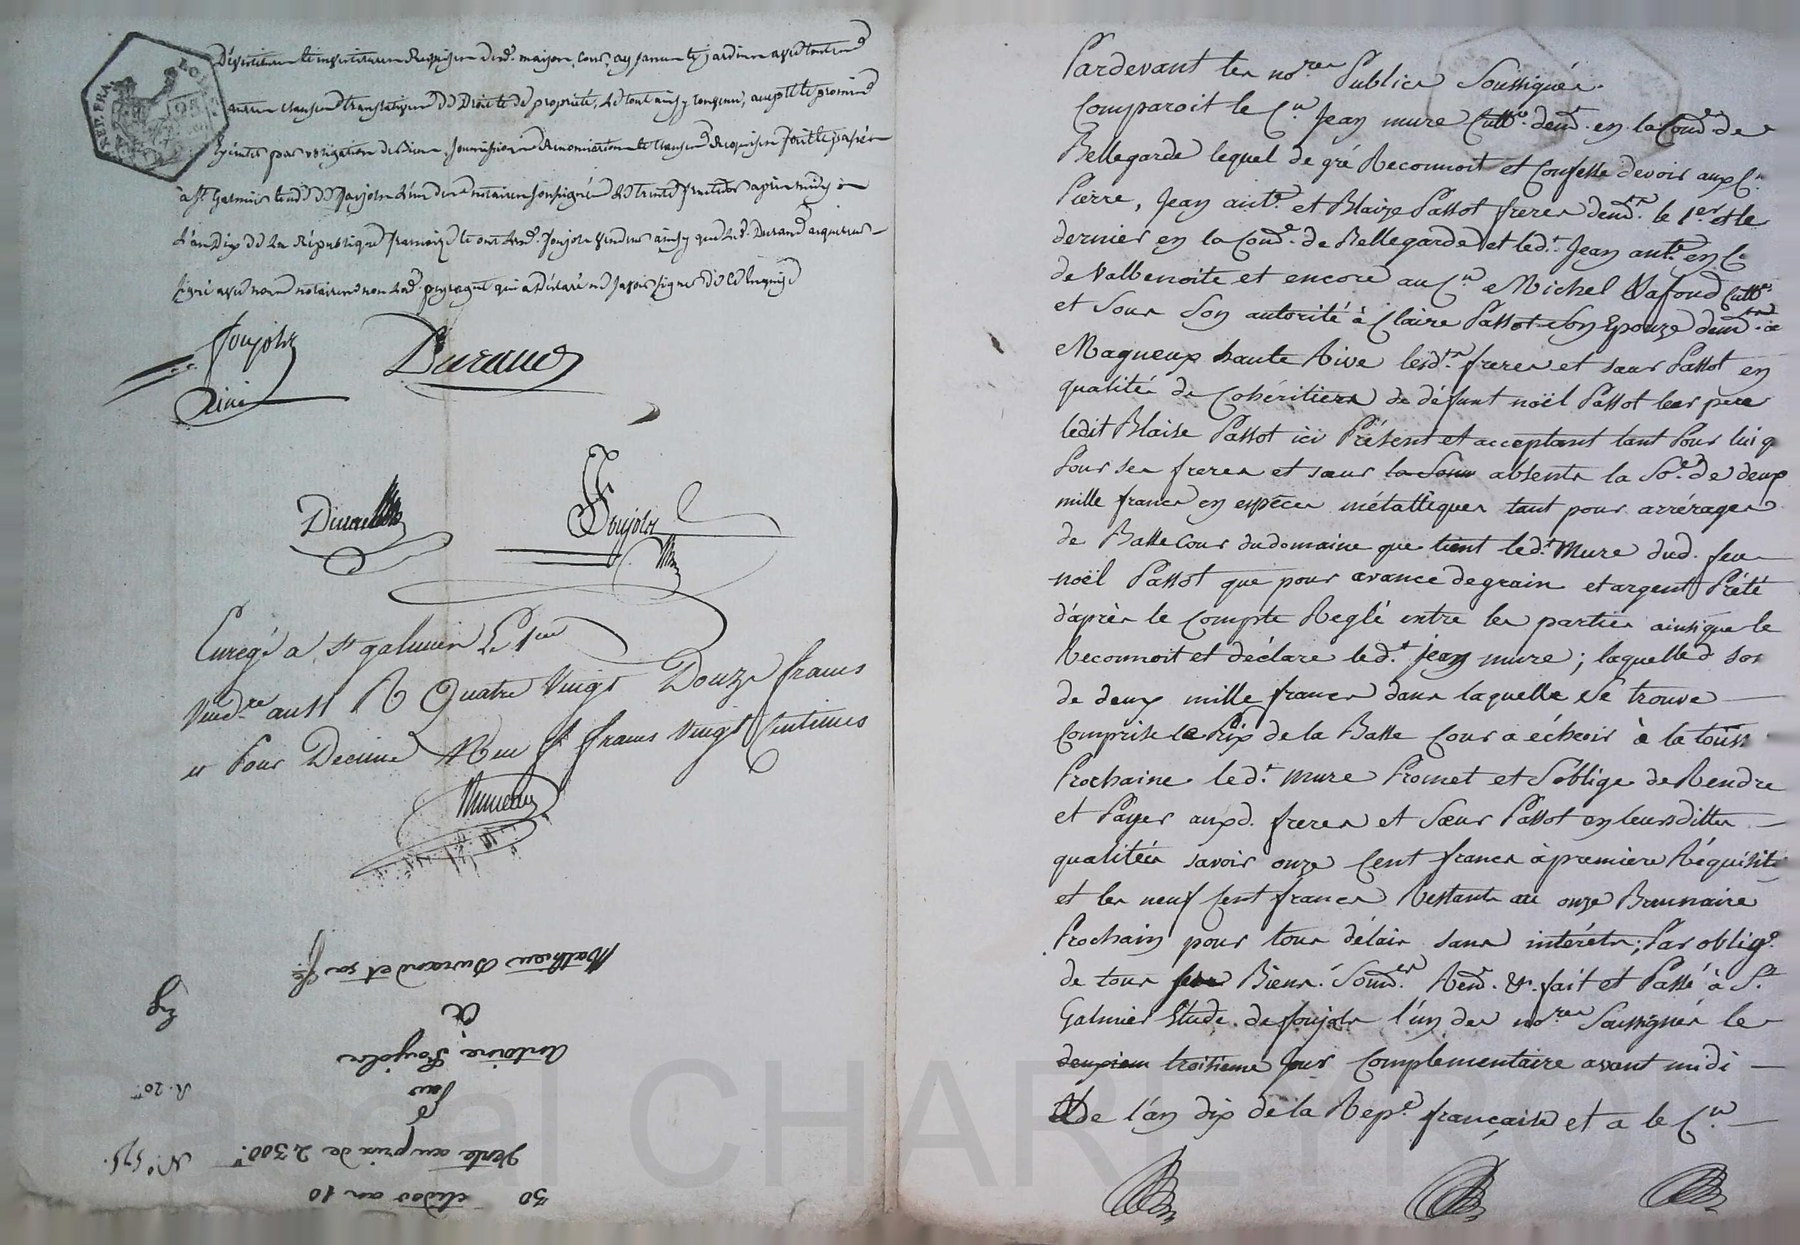 Dévestiture et investiture Requise dud. maison, cour, aysances et jardin avec toutes
autres clauses translatives de Droits de propriété, Le tout ainsy convenu, accepté et promis
par obligation de Biens, soumissions Renonciations et clauses Requises fait et passé
à St. Galmier étude de Joujols L'un des notaires soussignés Le trente fructidor après midy
L'an Dix de La République françoise et ont Led. Joujols vendeur ainsy que Led. Durand acquereur
signé avec nous notaires non Lad. qui a Déclaré ne savoir signer de ce Enquise
Joujols
Ainé
Durand
Durand
Joujols
Enregé a St galmier Le 1er
Vend.re an 11 R Quatre Vingt Douze francs
et Pour Decime Neuf francs Vingt Centimes
30 an 10
Vente au prix de 2,300.
N.° 575.
Par
R. 20
Antoine Joujols
à
Mathieu Durand et sa fe.
REP. FRA.
25
Pardevant les no.res Publics Soussignés.
Comparoit le C.n Jean mure Cult.r demt. en la Comde. de
Bellegarde lequel de gré Reconnoit et Confesse devoir aux C.n
Pierre, Jean ant.e et Blaize Passot freres demt. le 1.er et le
dernier en la Comde. de Bellegarde et led.t Jean ant.e en C.
de Valbenoite et encore au C.n Michel Lafond Cult.r
et Sous Son autorité à Claire Passot Son Epouze demt. à
Magneux haute Rive lesd.ts freres et sœur Passot en
qualité de Cohéritiers de défunt noël Passot leur père
ledit Blaise Passot ici Présent et acceptant tant Pour lui q
Pour ses freres et sœur la Som absents la So.e de deux
mille francs en espèces métalliques tant pour arrérages
de Basse Cour du domaine que tient led.t Mure dud. feu
noël Passot que pour avance de grain et argent Prété
d'après le Compte Reglé entre les parties ainsi que le
Reconnoit et déclare led.t Jean mure; laquelle d so
de deux mille francs dans laquelle Se trouve
Comprise le Prix de la Basse Cour a échoir à la touss
Prochaine led.t Mure Promet et S'oblige de Rendre
et Payer aux d. freres et Sœur Passot en leurs dittes
qualitées savoir onze Cent francs à premiere Réquisite
et les neuf Cent francs Restants au onze Brumaire
Prochain pour tous délais sans intérêts; Par oblig.on
de tous ses Biens. Soum.on Ren. &. fait et Passé à S.t
Galmier Etude de Joujols l'un des no.res Soussignés le
deuxieme troisieme jour Complementaire avant midi
de l'an dix de la Rep.e française et a le C.n
Pascal CHAREYRON